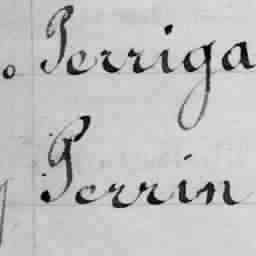 o Perriga
Perrin